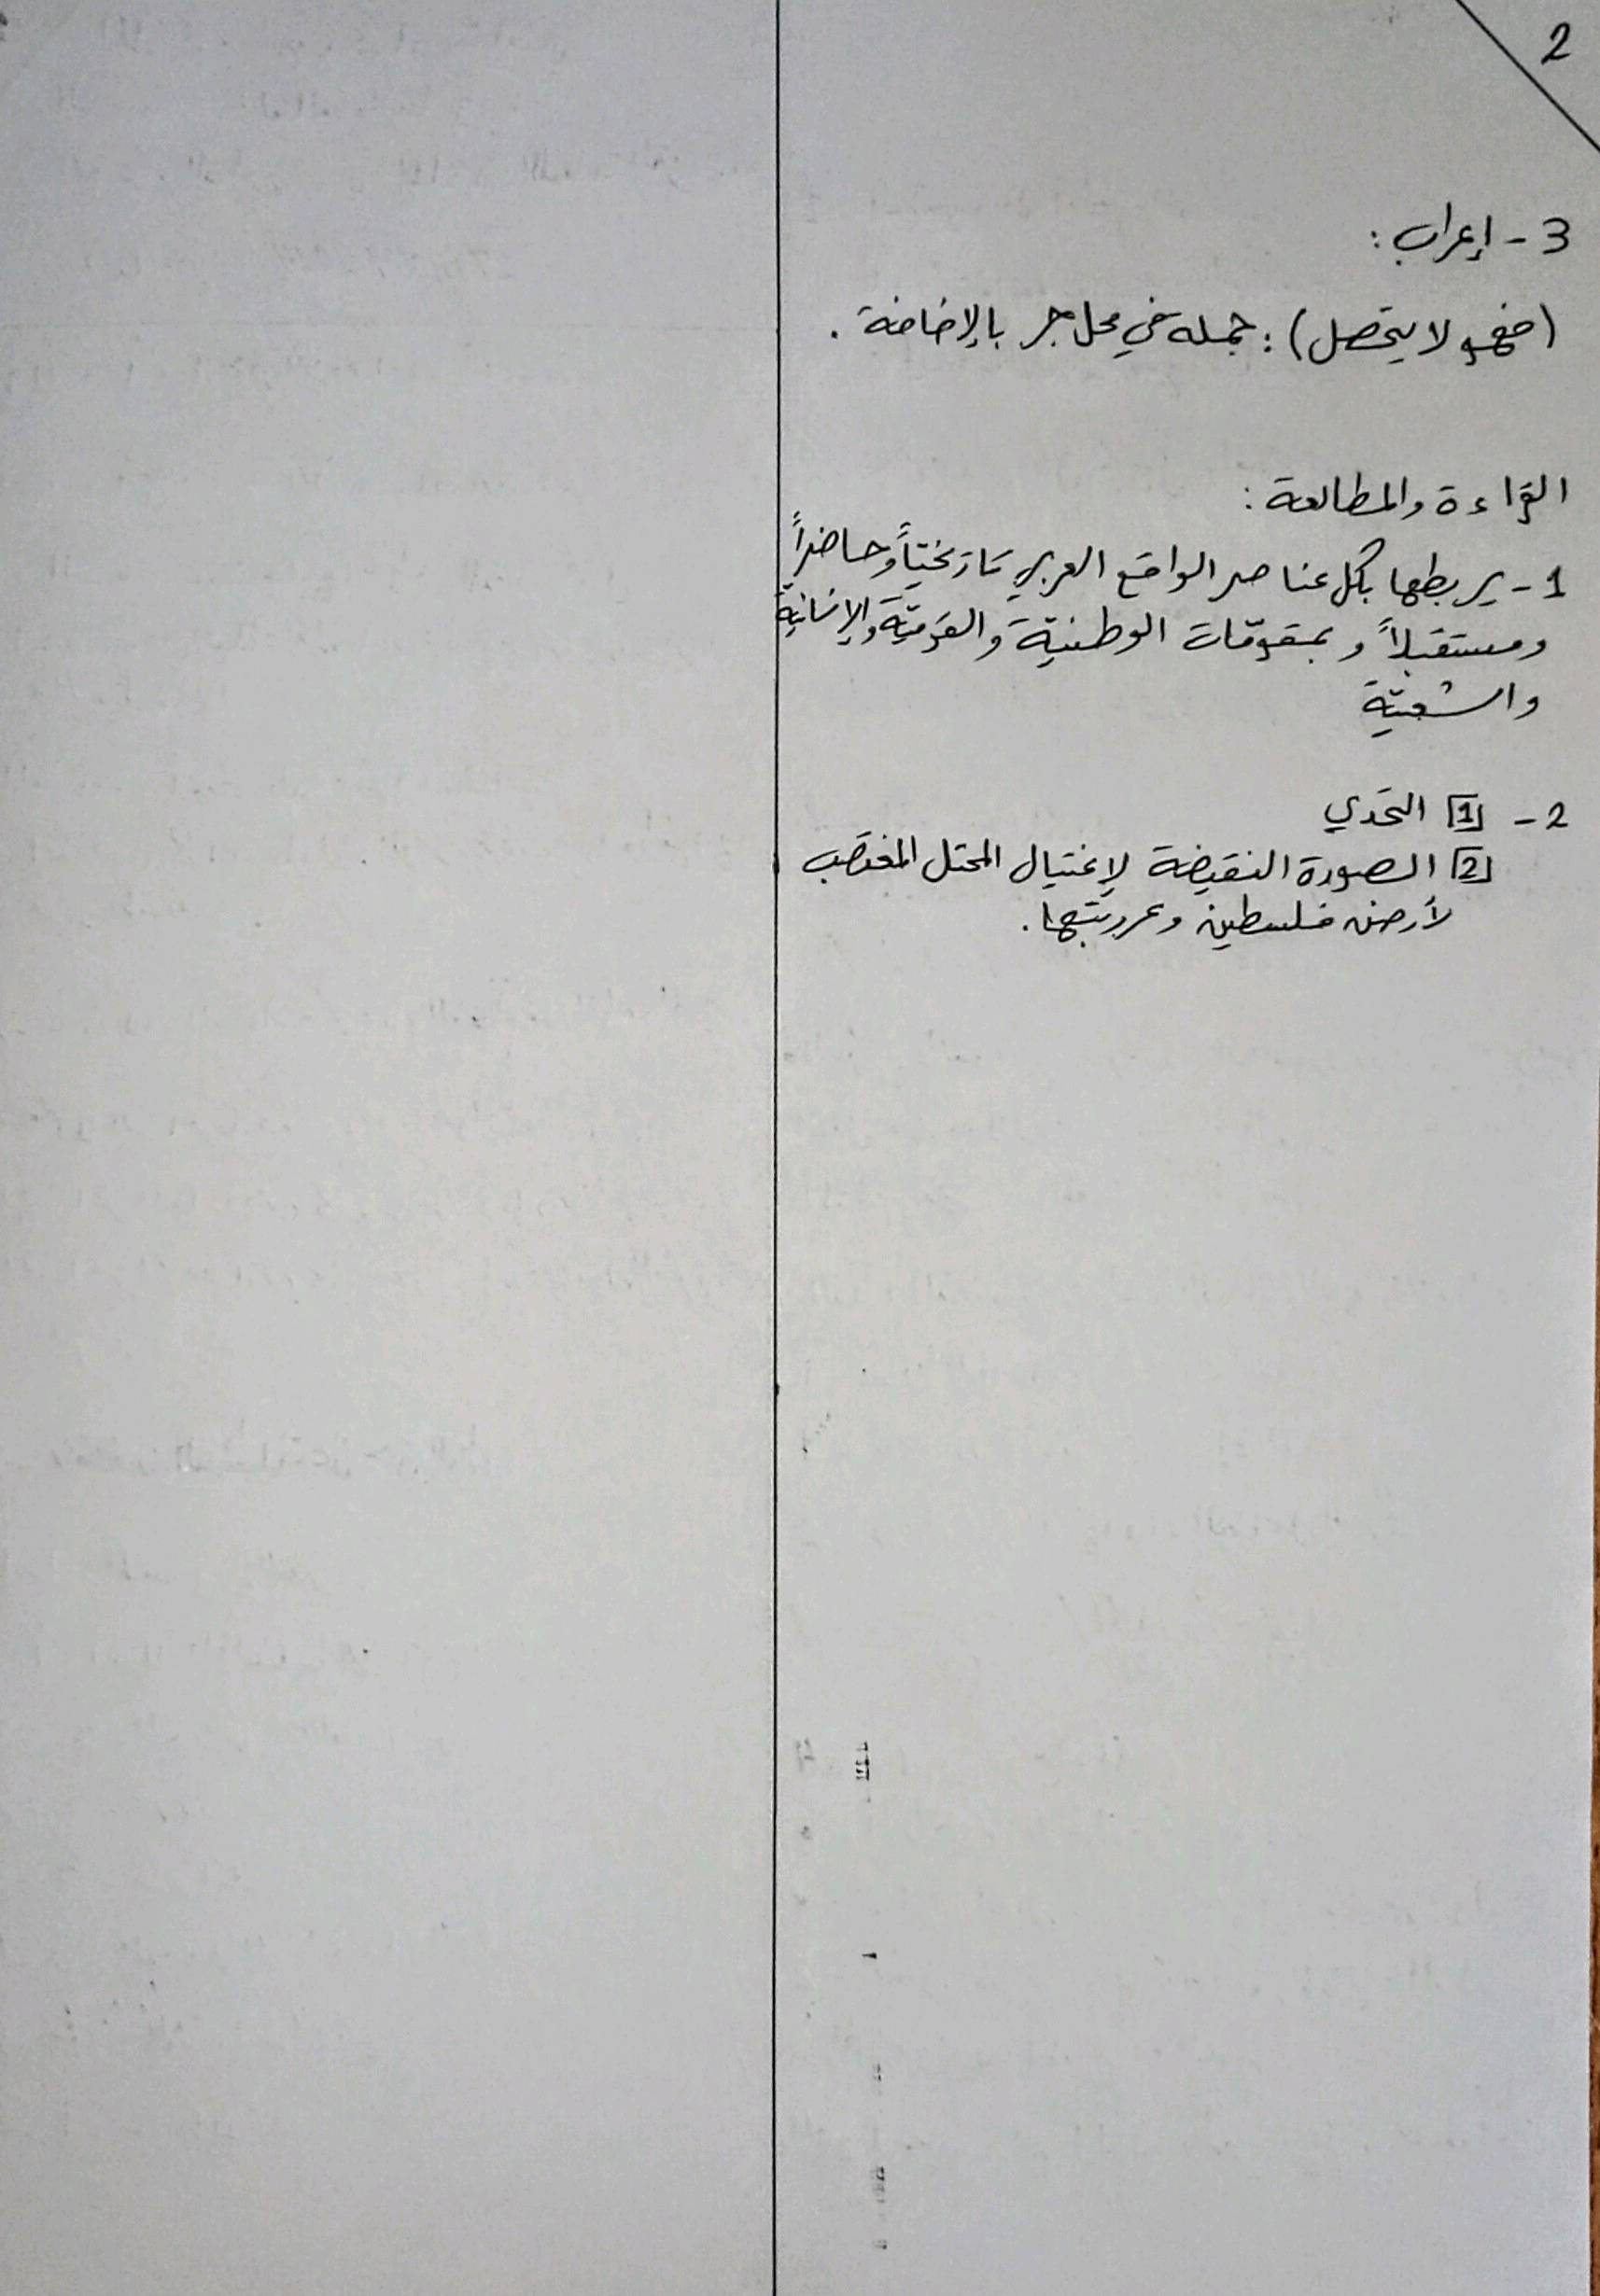 2
3 - إعراب :
(فهو لا يتحصل) : جملة في محل جر بالإضافة .
القراءة والمطالعة :
1 - يربطها بكل عناصر الواقع العربي تاريخيّاً وحاضراً
ومستقبلاً وبمقوّمات الوطنيّة والقوميّة والإنسانيّة
والشعبيّة
2 - [1] التحدي
[2] الصورة النقيضة لإغتيال المحتل المغتصب
لأرض فلسطين وعروبتها .